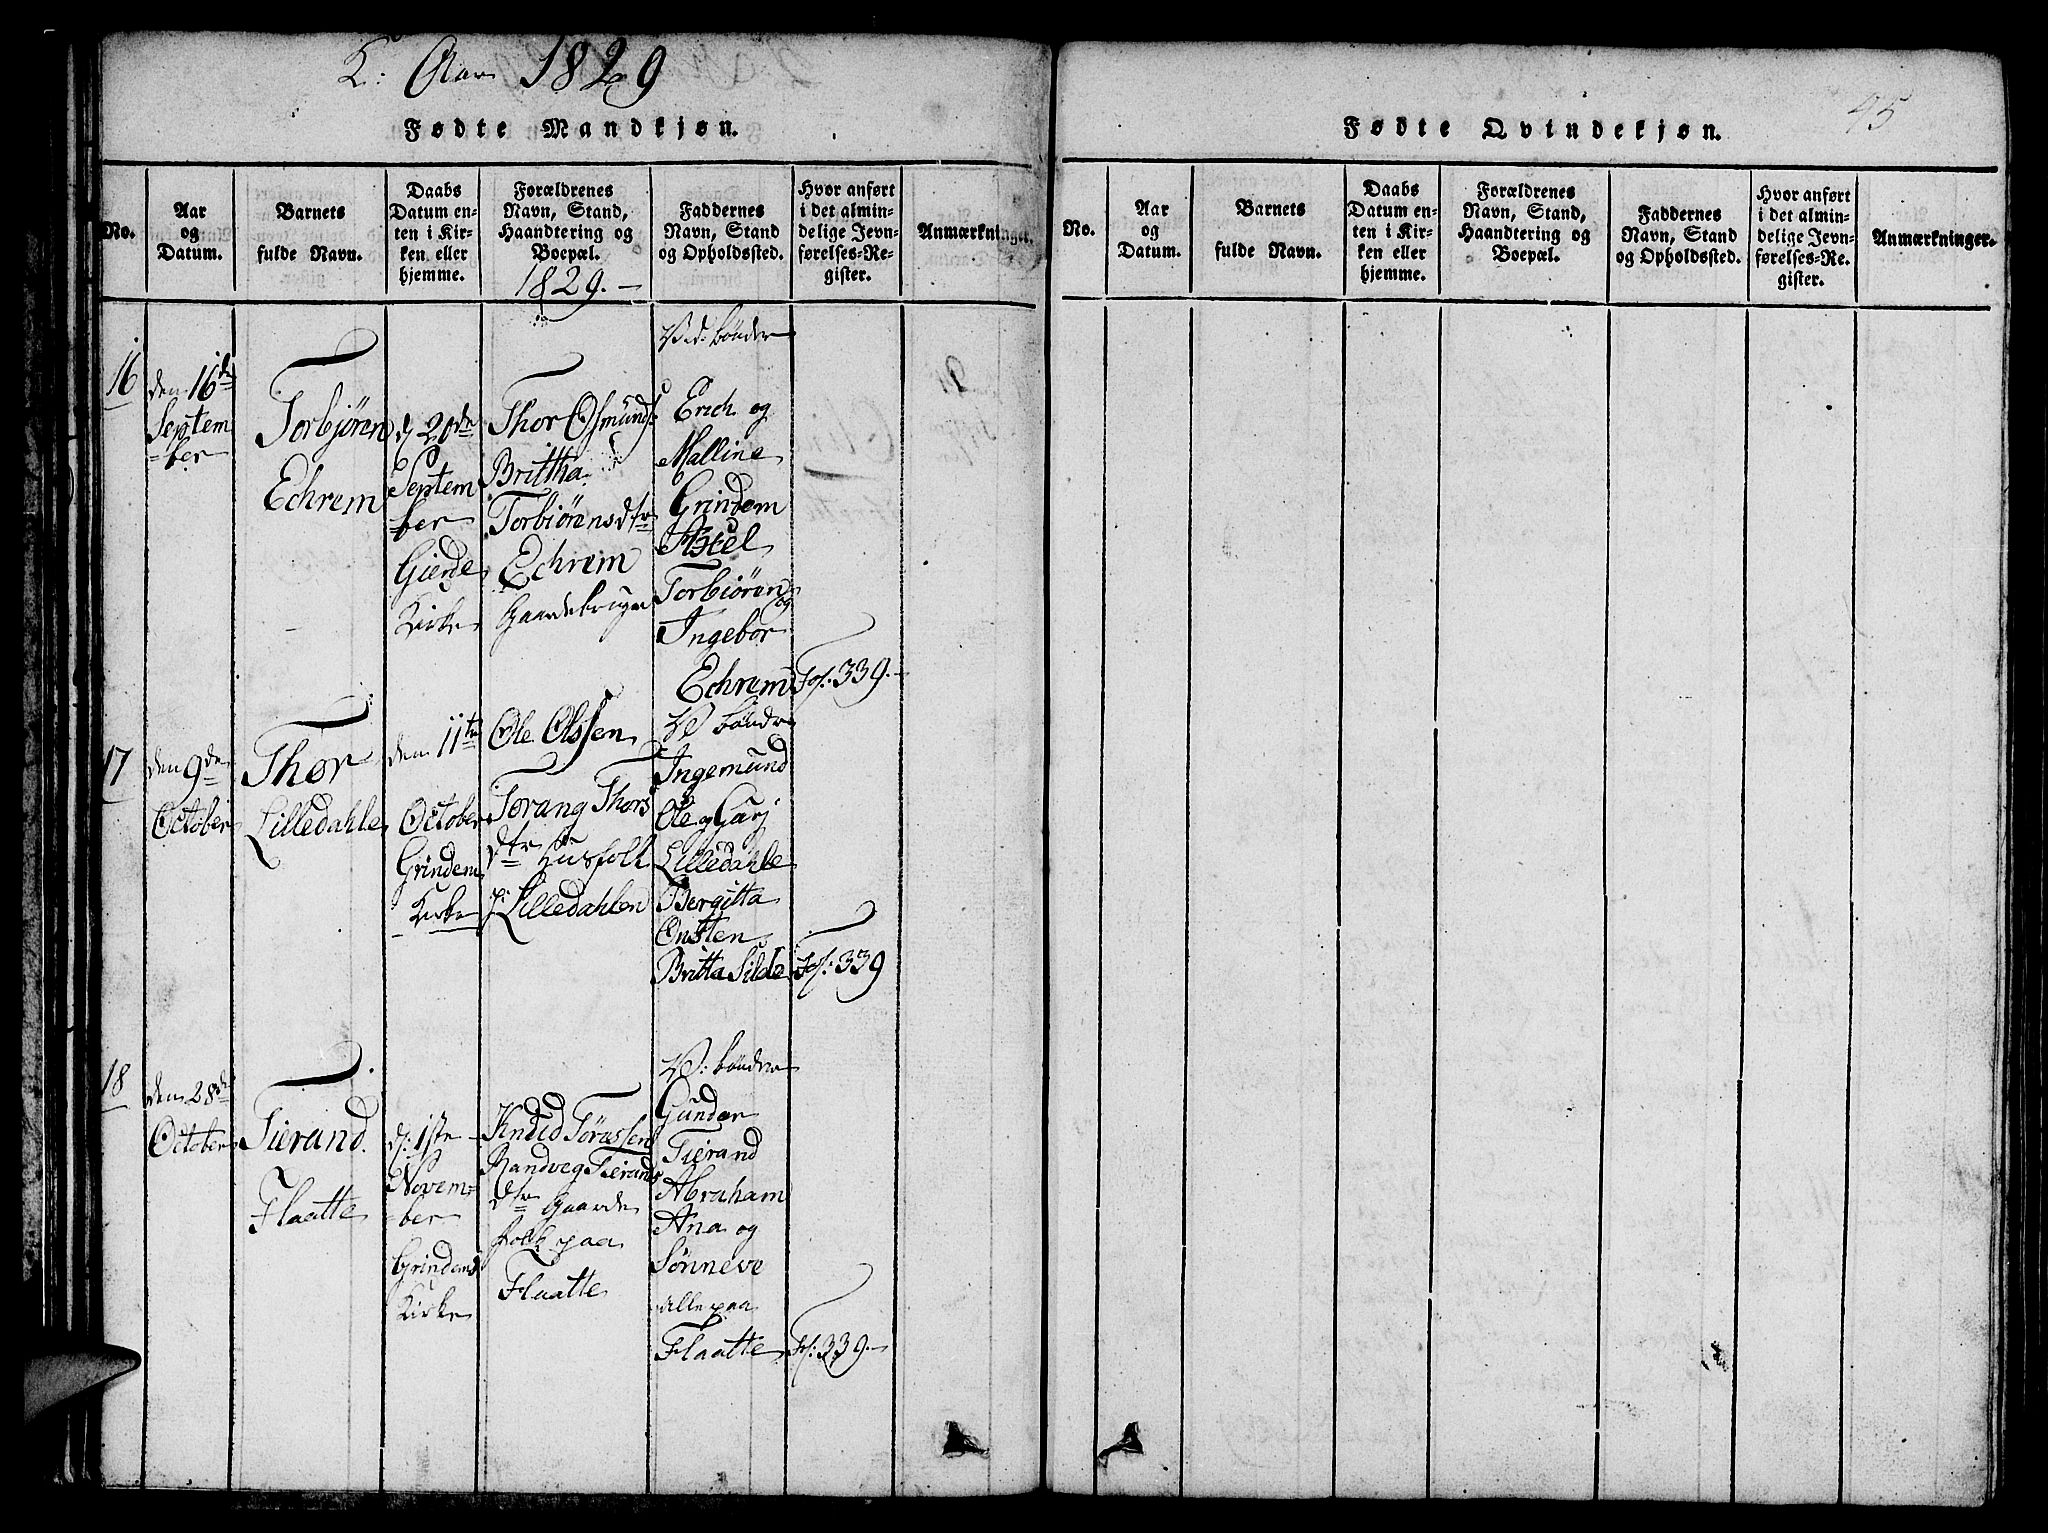 K: Aar 1829
Fødte Mandkjøn.
No.
Aar
og
Datum.
Barnets
fulde Navn.
Daabs
Datum en-
ten i Kir-
ken eller
hjemme.
Forældrenes
Navn, Stand,
Haandtering og
Boepæl.
1829.-
Faddernes
Navn, Stand
og Opholdssted.
Hvor anført
i det almin-
delige Jevn-
førelses-Re-
gister.
Anmærkninger.
16
den 16de
Septem
=ber
Torbjøren
Echrem
d 20de
Septem
=ber
Gierde
Kirke
Thor Osmunds:
Brittha
Torbiørensdtr
Echrem
Gaardebruger
bönder
Erich og
Malline
Grindem
Axcel
Torbiøren
og
Ingebor
Echrem
Fol: 339.-
17
den 9de
October
Thor
Lilledahle
den 11te
October
Grindem
Kirke
Ole Olssen
Torang Thors
dtr Husfolk
p: Lilledahlen
bönder
Ingemund
Ole og Gurj
Lilledahle
Bergitta
Onsten
Britta Silde
Fol: 339
18
den 28de
October
Tierand.
Flaatte
d: 1ste
Novem=
=ber
Grindems
Kirke
Knud Torassen
Randveg Tierands
dtr Gaarde
folk paa
Flaatte
bönder
Gunder
Tierand
Abraham
Ana og
Sønneve
alle paa
Flaatte
Fol: 339.-
45
Fødte Qvindekjøn.
No.
Aar
og
Datum.
Barnets
fulde Navn.
Daabs
Datum en-
ten i Kir-
ken eller
hjemme.
Forældrenes
Navn, Stand,
Haandtering og
Boepæl.
Faddernes
Navn, Stand
og Opholdssted.
Hvor anført
i det almin-
delige Jevn-
førelses-Re-
gister.
Anmærkninger.